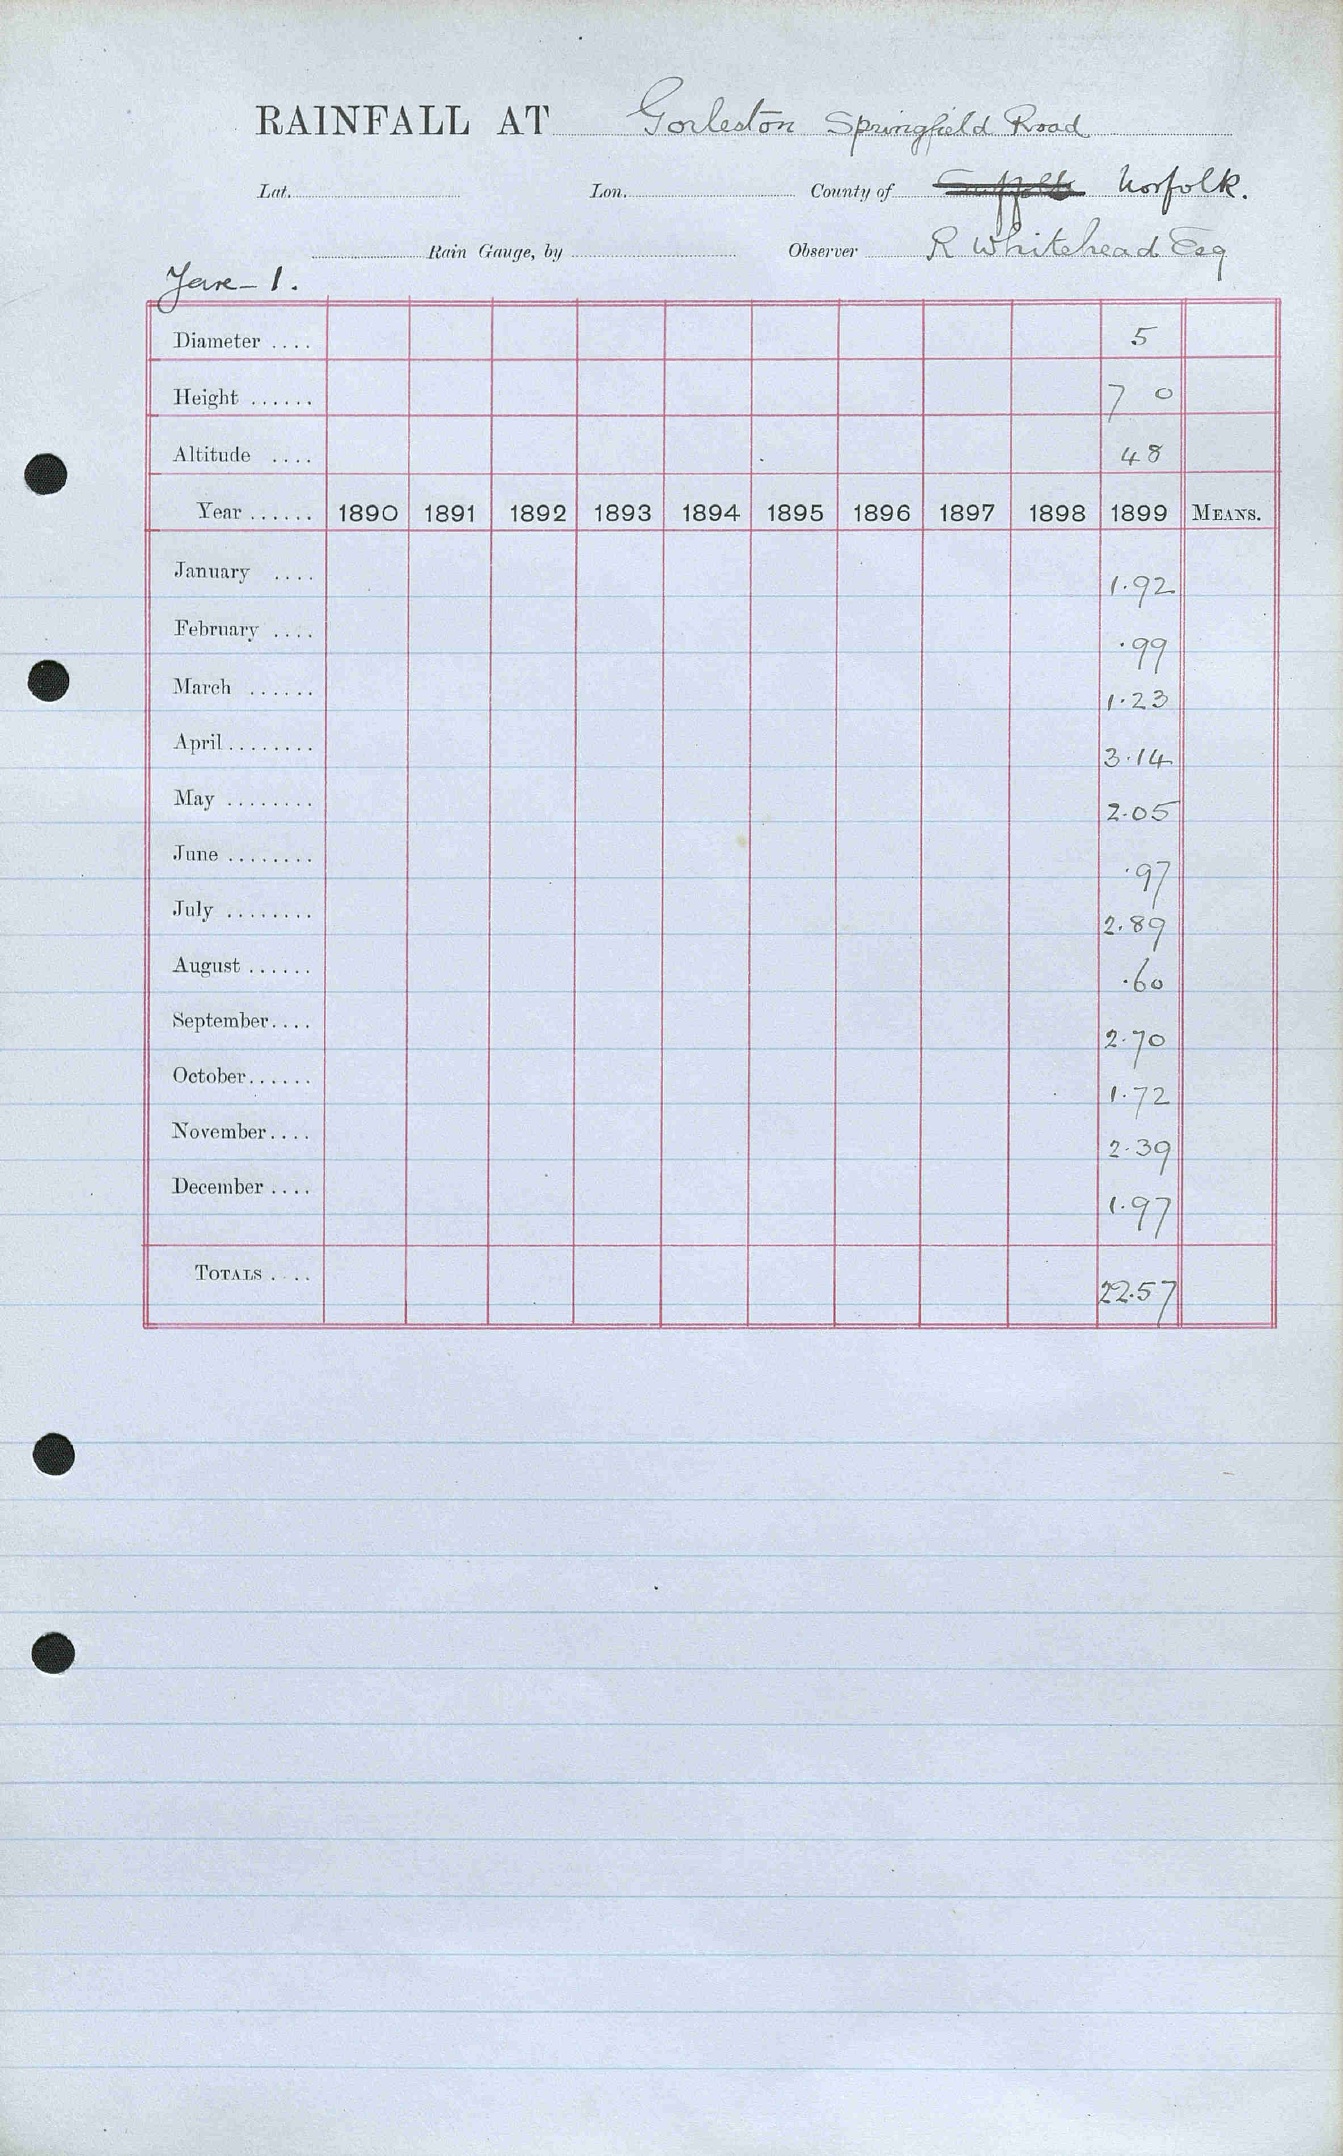 RAINFALL AT Gorleston Springfield Road
Lat. Lon. County of Suffolk Norfolk.
Rain Gauge, by Observer R Whitehead Esq
Yare - 1.
Diameter .... 5
Height ...... 7 0
Altitude .... 48
Year ...... 1890 1891 1892 1893 1894 1895 1896 1897 1898 1899 MEANS.
January .... 1.92
February .... .99
March ...... 1.23
April ........ 3.14
May ........ 2.05
June ........ .97
July ........ 2.89
August ...... .60
September.... 2.70
October...... 1.72
November.... 2.39
December .... 1.97
TOTALS .... 22.57